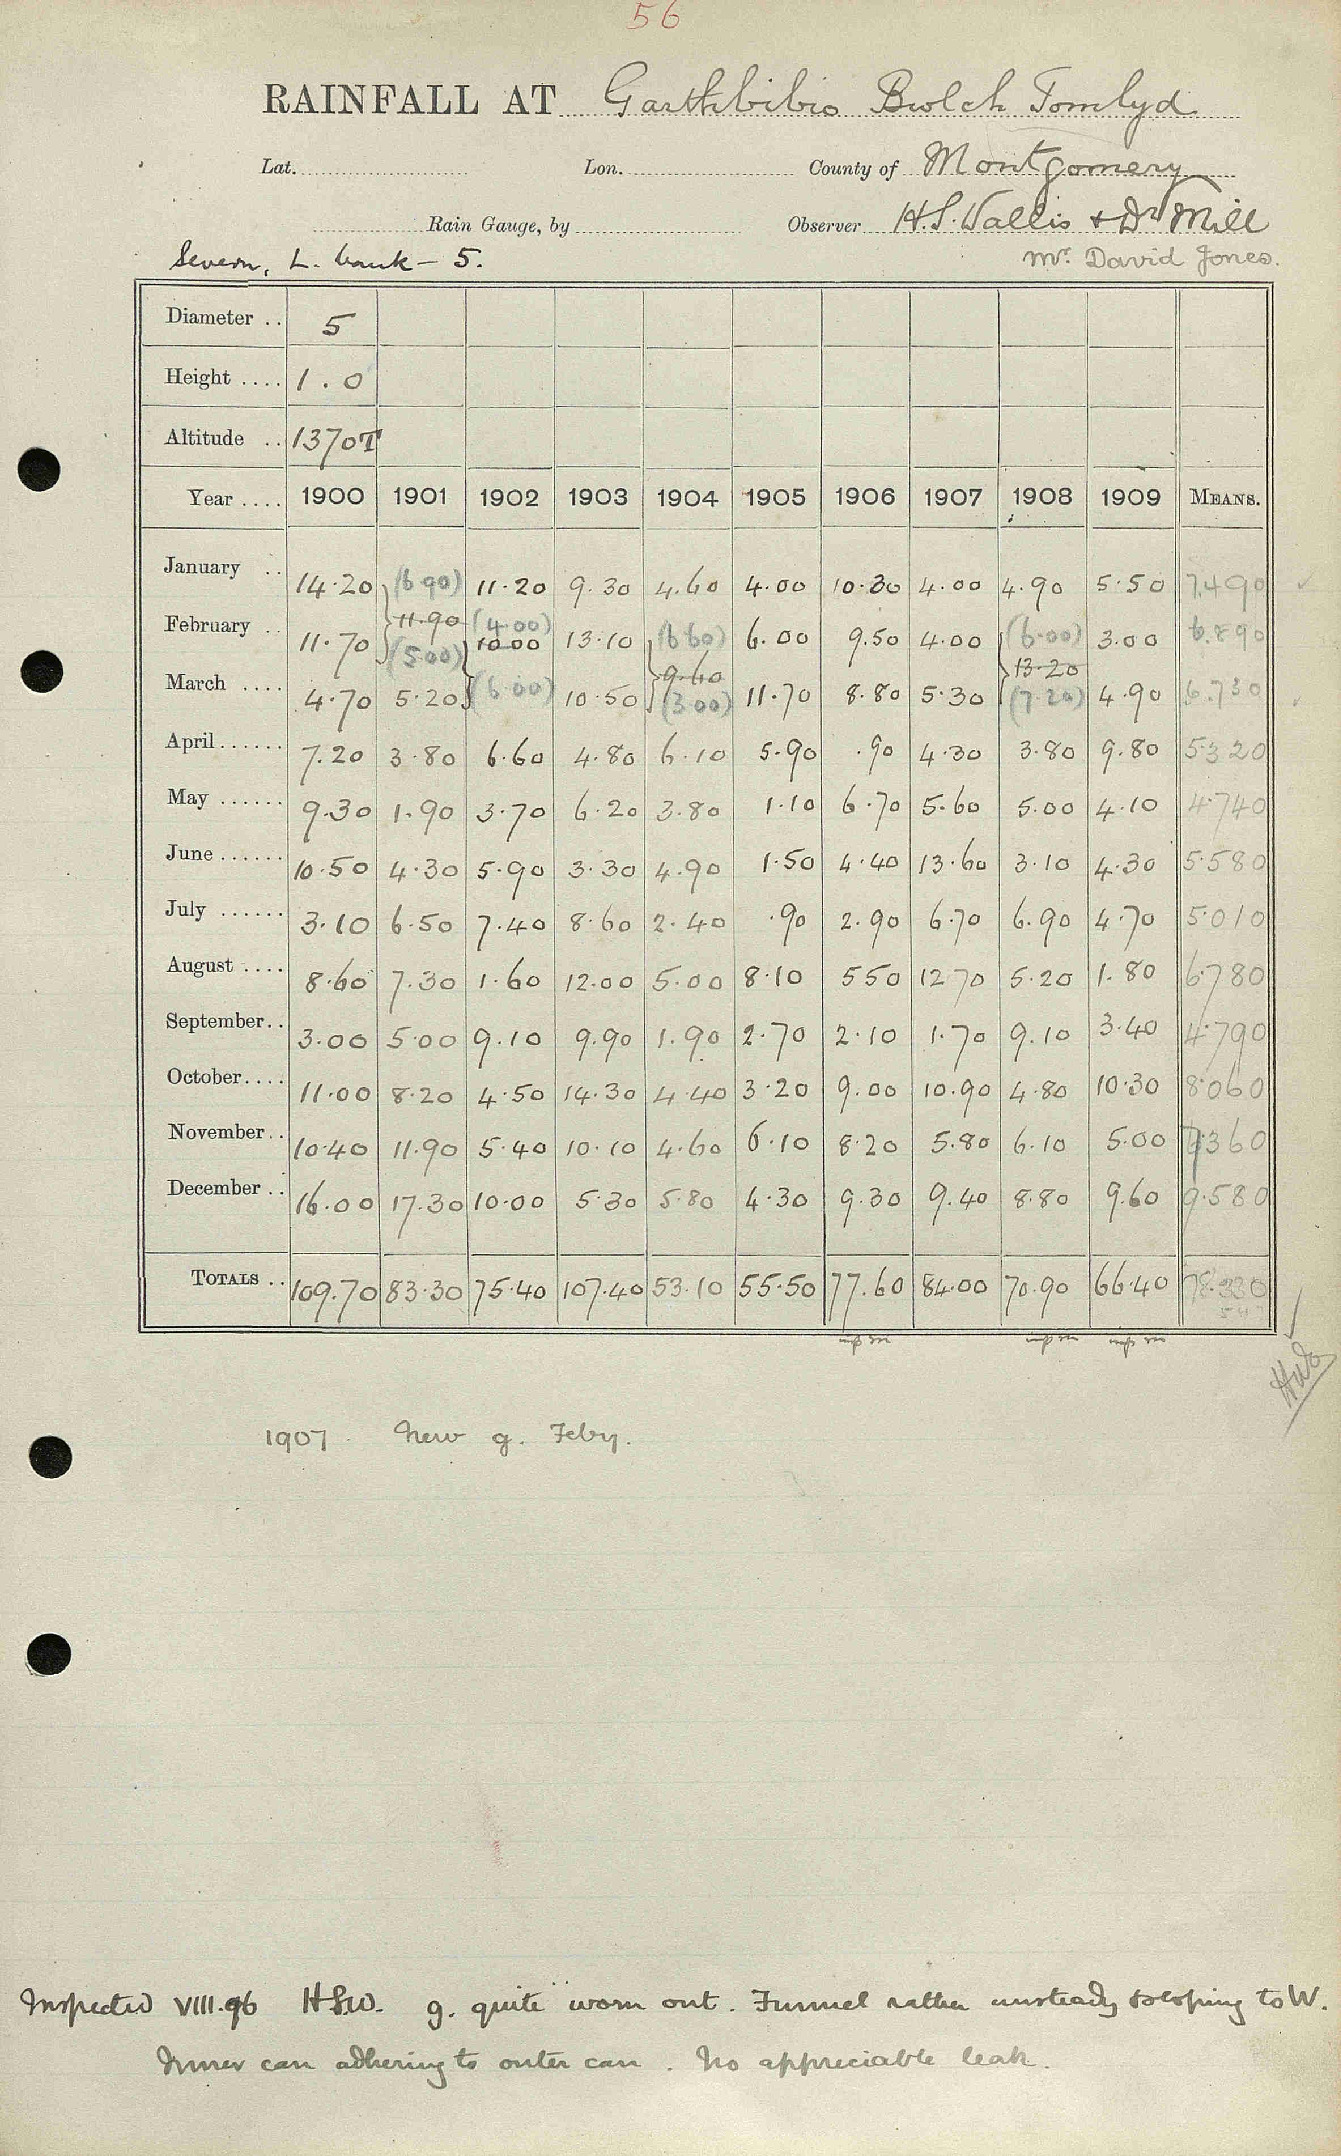 56
RAINFALL AT Garthbibio Bwlch Tomlyd
Lat. Lon. County of Montgomery
Rain Gauge, by Observer H.S. Wallis & Dr Mill
Severn, L. bank – 5. Mr. David Jones.
Diameter .. 5
Height .... 1.0
Altitude .. 1370T
Year .... 1900 1901 1902 1903 1904 1905 1906 1907 1908 1909 MEANS.
January .. 14.20 (6.90) 11.20 9.30 4.60 4.00 10.30 4.00 4.90 5.50 7.490
11.90 (4.00)
February .. 11.70 (5.00) 10.00 13.10 (6.60) 6.00 9.50 4.00 (6.00) 3.00 6.890
9.60 13.20
March .... 4.70 5.20 (6.00) 10.50 (3.00) 11.70 8.80 5.30 (7.20) 4.90 6.730
April ...... 7.20 3.80 6.60 4.80 6.10 5.90 .90 4.30 3.80 9.80 5.320
May ...... 9.30 1.90 3.70 6.20 3.80 1.10 6.70 5.60 5.00 4.10 4.740
June ...... 10.50 4.30 5.90 3.30 4.90 1.50 4.40 13.60 3.10 4.30 5.580
July ...... 3.10 6.50 7.40 8.60 2.40 .90 2.90 6.70 6.90 4.70 5.010
August .... 8.60 7.30 1.60 12.00 5.00 8.10 5.50 12.70 5.20 1.80 6.780
September .. 3.00 5.00 9.10 9.90 1.90 2.70 2.10 1.70 9.10 3.40 4.790
October .... 11.00 8.20 4.50 14.30 4.40 3.20 9.00 10.90 4.80 10.30 8.060
November .. 10.40 11.90 5.40 10.10 4.60 6.10 8.20 5.80 6.10 5.00 7.360
December .. 16.00 17.30 10.00 5.30 5.80 4.30 9.30 9.40 8.80 9.60 9.580
TOTALS .. 109.70 83.30 75.40 107.40 53.10 55.50 77.60 84.00 70.90 66.40 78.330
1907 New g. Feby.
Inspected VIII.96 HSW. g. quite worn out. Funnel rather unsteady & sloping to W.
Inner can adhering to outer can. No appreciable leak.